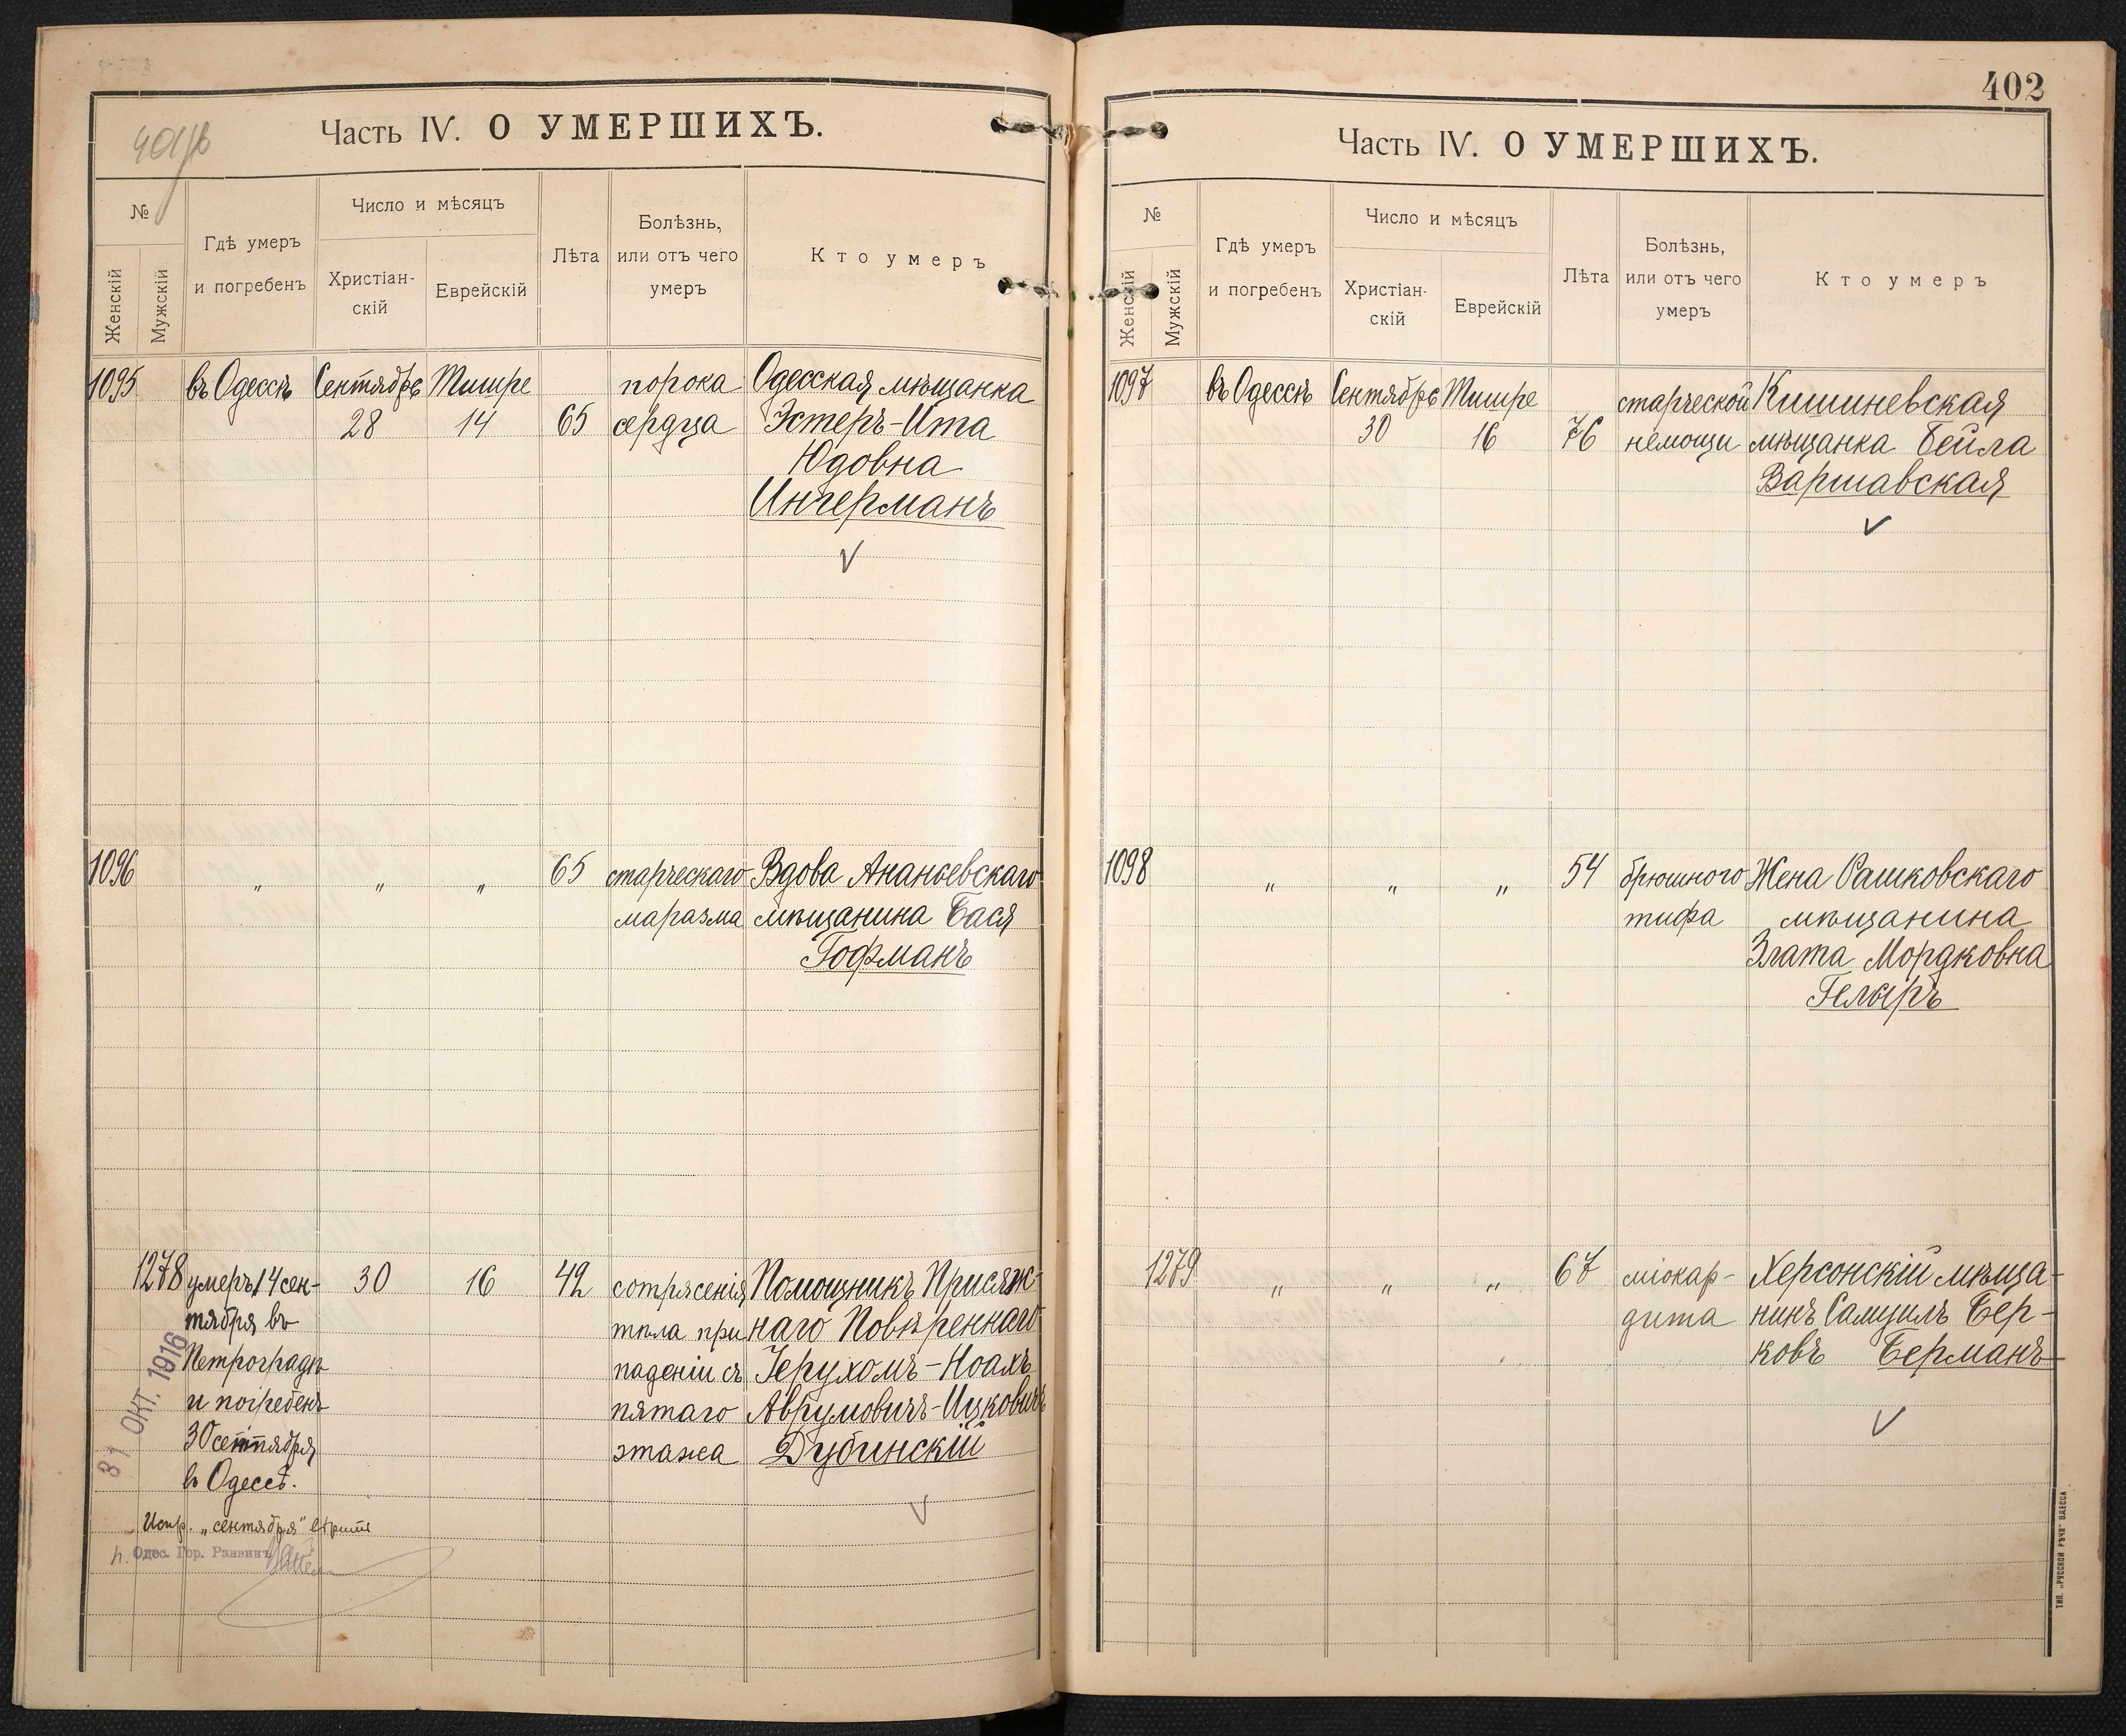 401/об
Часть IV. О УМЕРШИХЪ.
№
Женскій
Мужскій
Гдѣ умеръ
и погребенъ
Число и мѣсяцъ
Христіан-
скій
Еврейскій
Лѣта
Болѣзнь,
или отъ чего
умеръ
Кто умеръ
1095 въ Одессѣ Сентябрь Тишре порока Одесская мѣщанка
28 14 65 сердца Эстеръ-Ита
Юдовна
Ингерманъ
1096 „ „ „ 65 старческаго Вдова Ананьевскаго
маразма мѣщанина Бася
Гофманъ
1278 умеръ 14 сен- 30 16 42 сотрясенія Помощникъ Присяж-
тября въ тѣла при наго Повѣреннаго
Петроградѣ паденіи съ Іерухомъ-Ноахъ
и погребенъ пятаго Аврумовичъ-Ицковичъ
30 сентября этажа Дубинскій
въ Одессѣ.
31 ОКТ. 1916
Испр. „сентября" вѣрить
Одес. Гор. Раввинъ
402
Часть IV. О УМЕРШИХЪ.
№
Женскій
Мужскій
Гдѣ умеръ
и погребенъ
Число и мѣсяцъ
Христіан-
скій
Еврейскій
Лѣта
Болѣзнь,
или отъ чего
умеръ
Кто умеръ
1097 въ Одессѣ Сентябрь Тишре старческой Кишиневская
30 16 76 немощи мѣщанка Бейла
Варшавская
1098 „ „ „ 54 брюшного Жена Рашковскаго
тифа мѣщанина
Злата Мордковна
Гельфръ
1279 „ „ „ 67 міокар- Херсонскій мѣща-
дита нинъ Самуилъ Бер-
ковъ Берманъ
ТИП. „РУССКОЙ РѢЧИ" ОДЕССА